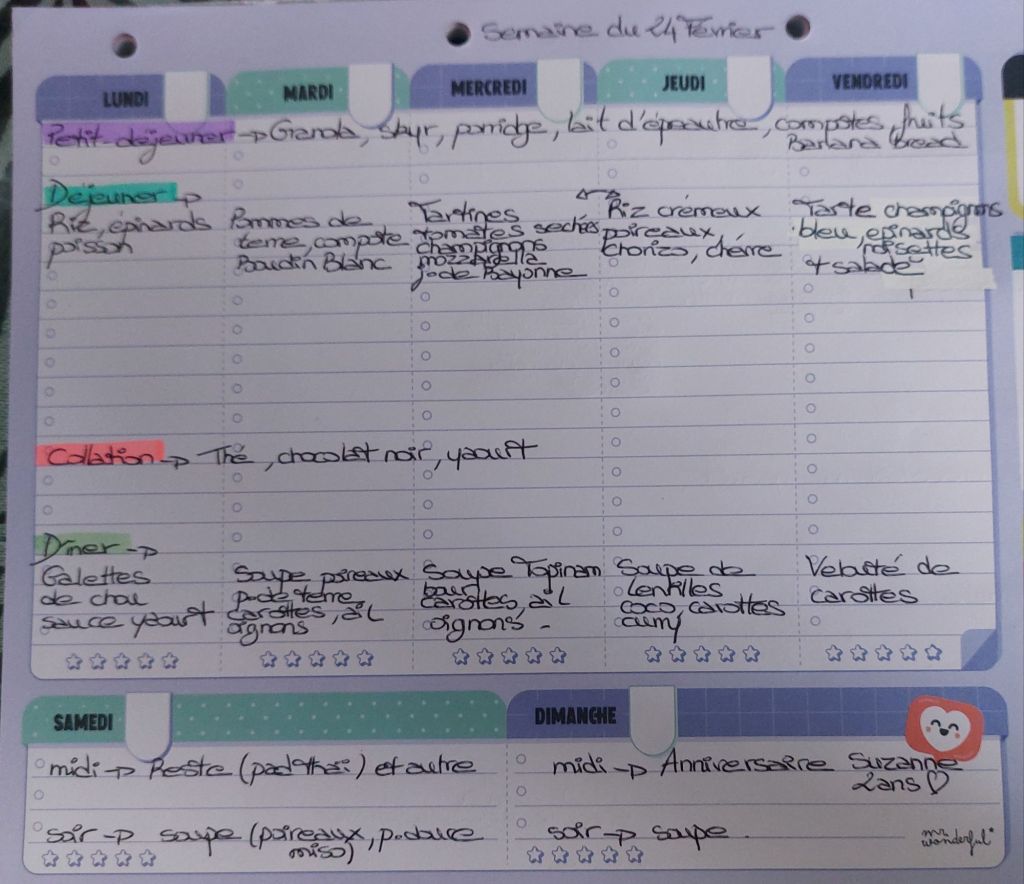 Semaine du 24 Février
LUNDI MARDI MERCREDI JEUDI VENDREDI
Petit-déjeuner → Granola, skyr, porridge, lait d'épeautre, compotes, fruits
Banana Bread
Déjeuner →
Riz, épinards
poisson
Pommes de
terre, compote
Boudin Blanc
Tartines
tomates sechés
champignons
mozzarella
j. de Bayonne
↔
Riz crémeux
poireaux,
chorizo, chèvre
Tarte champignons
bleu, epinards
noisettes
+ salade
Collation → Thé, chocolat noir, yaourt
Dîner →
Galettes
de chou
sauce yaourt
Soupe poireaux
p. de terre
carottes, ail
oignons
Soupe Topinam
bour
carottes, ail
oignons -
Soupe de
lentilles
coco, carottes
curry
Velouté de
carottes
SAMEDI
midi → Reste (pad thaï) et autre
soir → soupe (poireaux, p. douce
miso)
DIMANCHE
midi → Anniversaire Suzanne
2 ans ♡
soir → soupe.
mr.
wonderful*